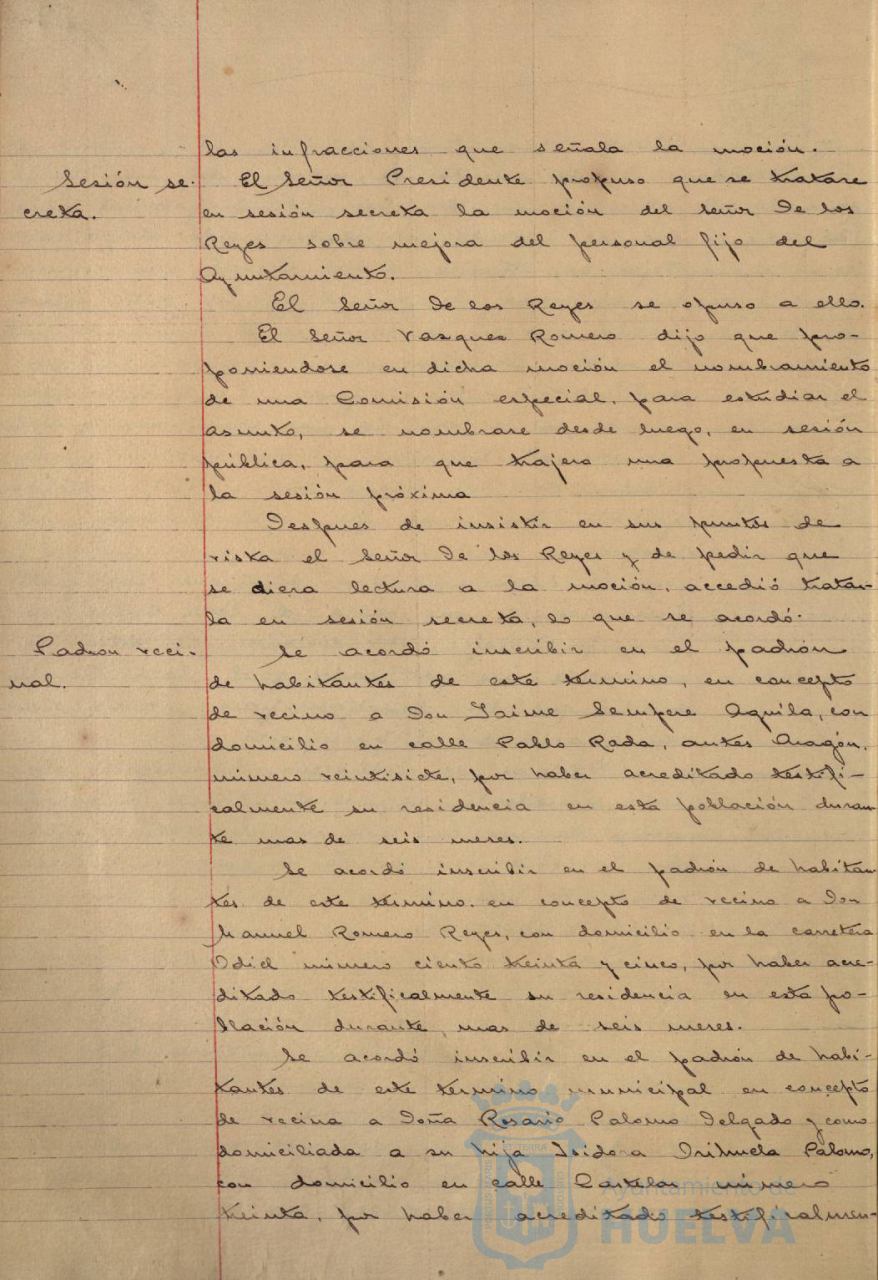 las infracciones que señala la moción.
Sesión se-
creta.
El Señor Presidente propuso que se tratare
en sesión secreta la moción del Señor De los
Reyes sobre mejora del personal fijo del
Ayuntamiento.
El Señor De los Reyes se opuso a ello.
El Señor Vasques Romero dijo que pro-
poniendose en dicha moción el nombramiento
de una Comisión especial, para estudiar el
asunto, se nombrare desde luego, en sesión
pública, para que trajera una propuesta a
la sesión próxima
Despues de insistir en sus puntos de
vista el Señor De los Reyes y de pedir que
se diera lectura a la moción, accedió tratar-
la en sesión secreta, lo que se acordó.
Padron veci-
nal.
Se acordó inscribir en el padrón
de habitantes de este termino, en concepto
de vecino a Don Jaime Sempere Aquila, con
domicilio en calle Pablo Rada, antes Aragón,
número veintisiete, por haber acreditado testifi-
calmente su residencia en esta población duran-
te mas de seis meses.
Se acordó inscribir en el padrón de habitan-
tes de este termino en concepto de vecino a Don
Manuel Romero Reyes, con domicilio en la carretera
Odiel número ciento treinta y cinco, por haber acre-
ditado testificalmente su residencia en esta po-
blación durante mas de seis meses.
Se acordó inscribir en el padrón de habi-
tantes de este termino municipal en concepto
de vecina a Doña Rosario Palomo Delgado y como
domiciliada a su hija Isidora Orihuela Palomo,
con domicilio en calle Castelar número
treinta, por haber acreditado testificalmen-
Ayuntamiento de
HUELVA